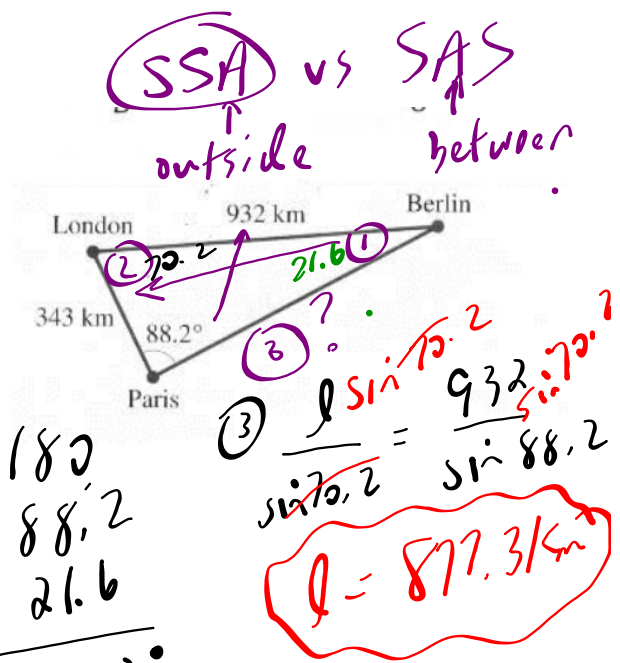 SSA vs SAS
outside between
London 932 km Berlin
② 70.2 21.6 ①
343 km 88.2° ③ ?
Paris
③ l sin 70.2 / sin 70.2 = 932 sin 70.2 / sin 88.2
180
88.2
21.6
l = 877.3 km